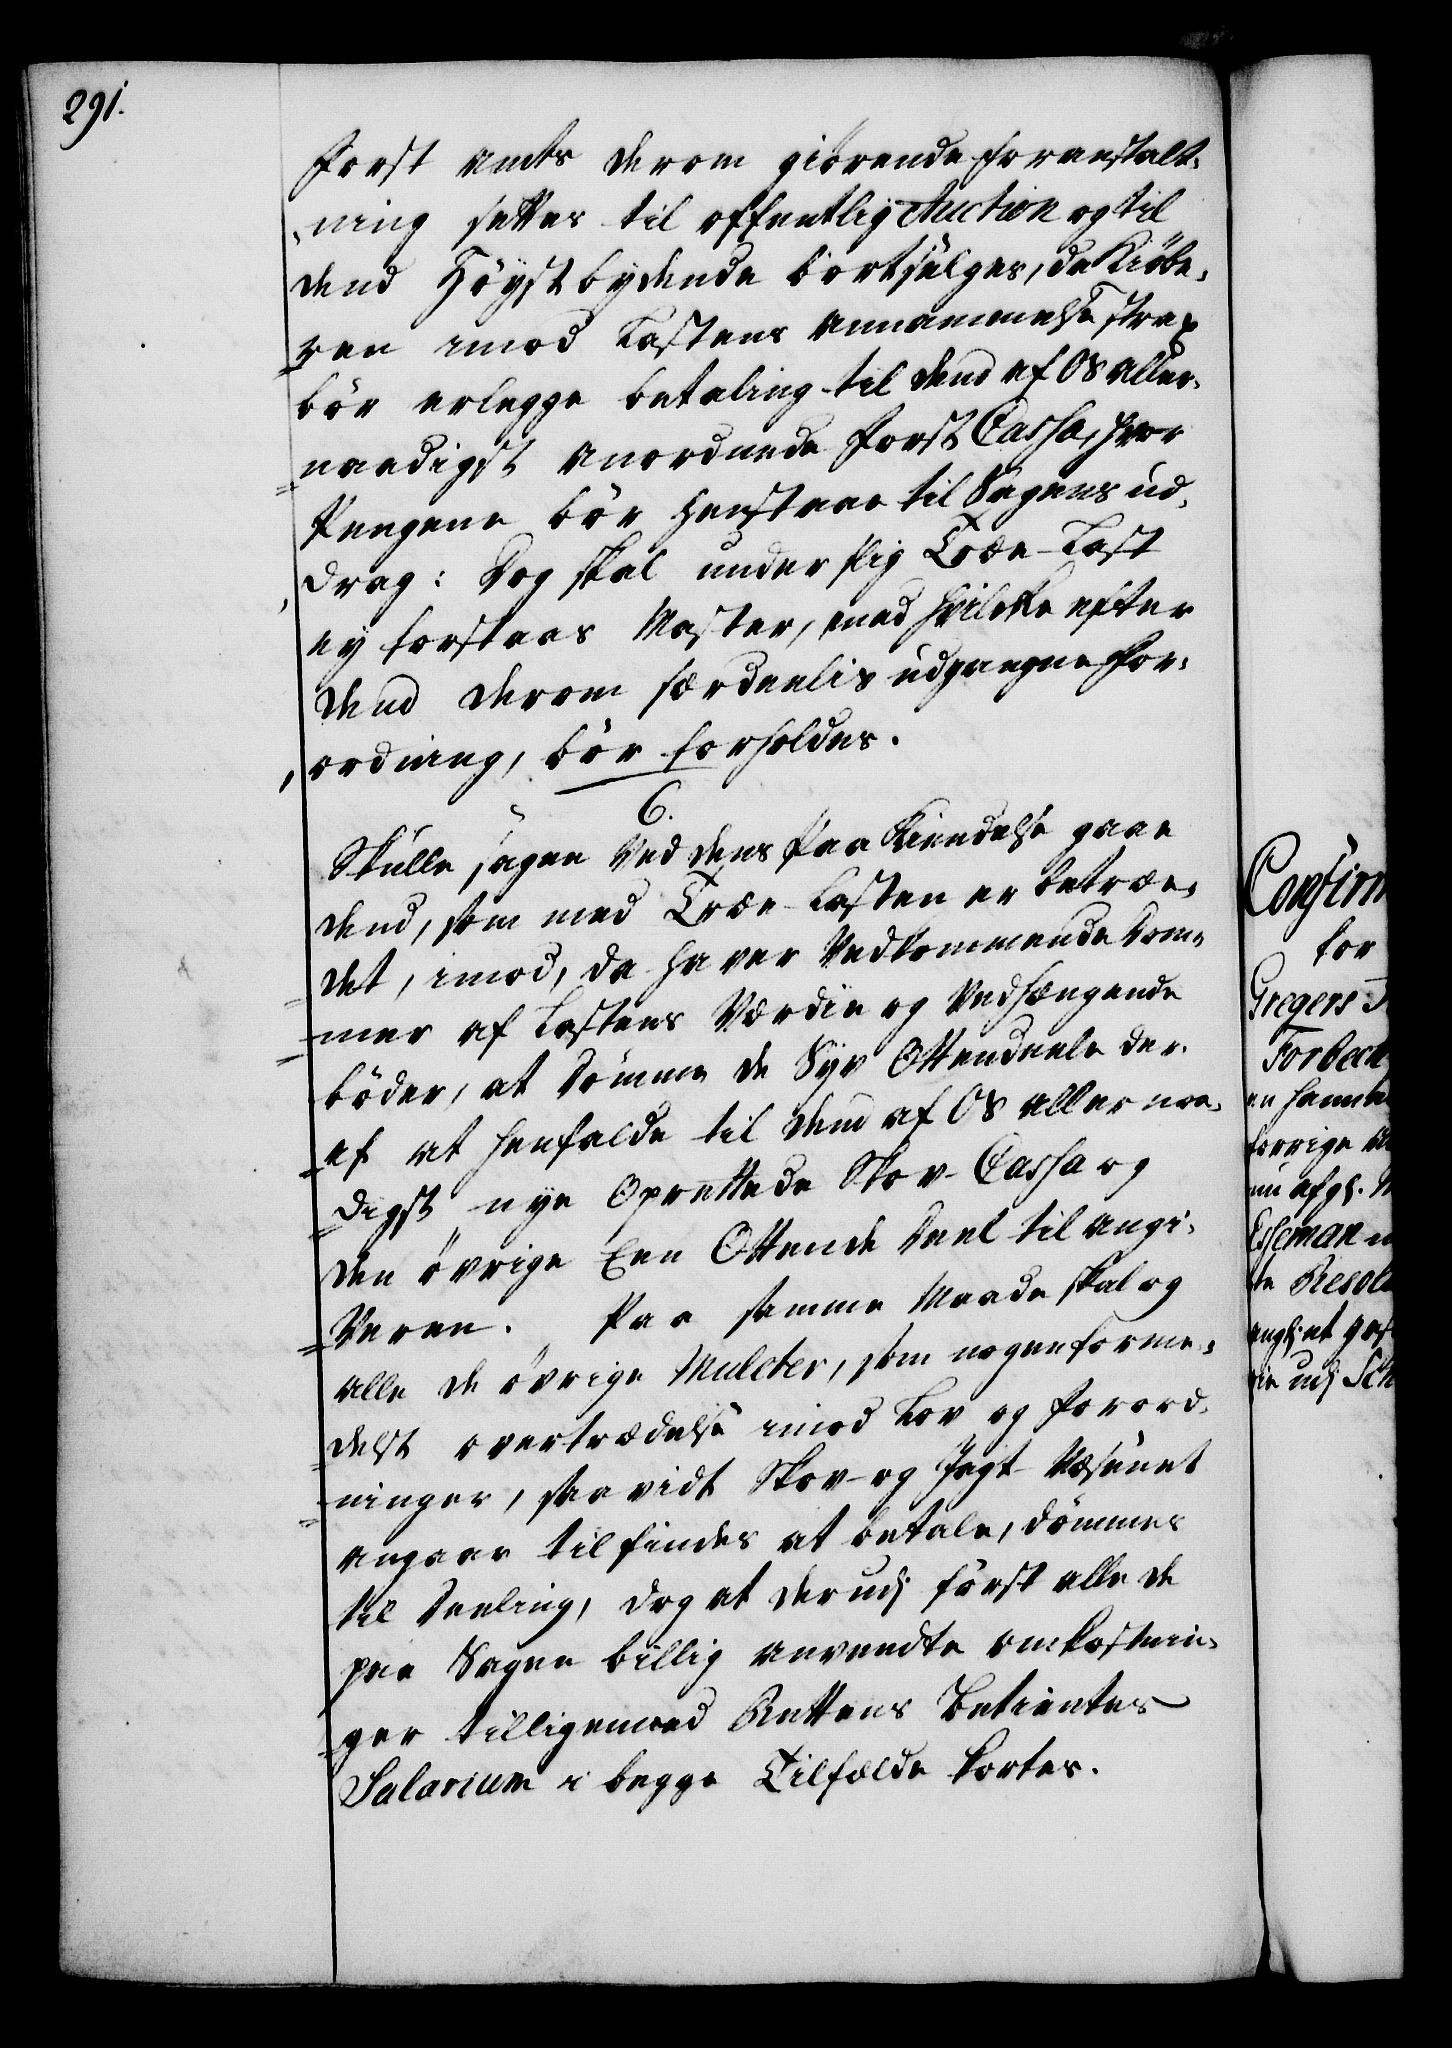 291.
Forst Ambts derom giörende foranstalt-
ning settes til offentlig Auction og til
dend Höystbydende bortsælges, da Kiöbe-
ren imod Lastens Annammelse strax
bör erlegge betaling til dend af OS aller-
naadigst anordnede Forst Cassa, hvor
Pengene bör henstaae til Sagens ud-
drag: Dog skal under slig Træe-Last
ey forstaaes Master, med hvilcke efter
dend derom særdeelis udgangne For-
ordning, bör forholdes.
6.
Skulle sagen ved dens Paa Kiendelse gaae
dend, som med Træe-Lasten er betræe-
det, imod, da haver Vedkommende Dom-
mer af Lastens Værdie og Vedhængende
böder, at dömme de Syv Ottendeele der-
af at henfalde til dend af OS allernaa-
digst nye Oprettede Skov-Cassa og
den övrige Een Ottende Deel til angi-
Veren. Paa samme Maade skal og
alle de övrige Mulcter, som nogen forme-
delst overtrædelse imod Lov og Forord-
ninger, saavidt Skov- og Jagt-Væsenet
angaar tilfindes at betale, dömmes
til Deeling, dog at derudj först alle de
paa Sagen billig anvendte omkostnin-
ger tilligemed Rettens Betientes
Salarium i begge Tilfælde kortes.
Confirm
for
Gregers
Torbeck
en hannem
forrige
nu afg:
Esseman
te Resol
angl:
udj